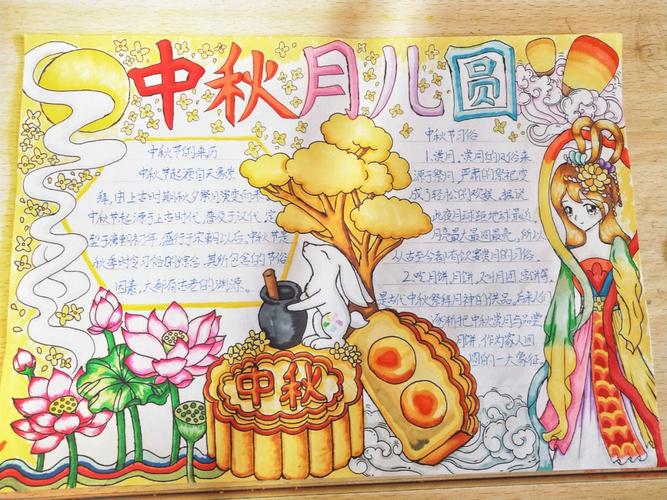 中秋月儿圆
中秋节的来历
中秋节起源自天象崇
拜,由上古时期秋夕祭月演变而来
中秋节起源于上古时代,普及于汉代,定
型于唐朝初年,盛行于宋朝以后。中秋节是
秋季时令习俗的综合,其所包含的节俗
因素,大都有古老的渊源。
中秋节习俗
1.赏月,赏月的风俗来
源于祭月,严肃的祭祀变
成了轻松的欢娱。据说
此夜月球距地球最近,
月亮最大最圆最亮,所以
从古至今都有饮宴赏月的习俗。
2.吃月饼,月饼,又叫月团
是古代中秋祭拜月神的供品,
逐渐把中秋赏月与品尝
月饼,作为家人团
圆的一大象征。
中秋